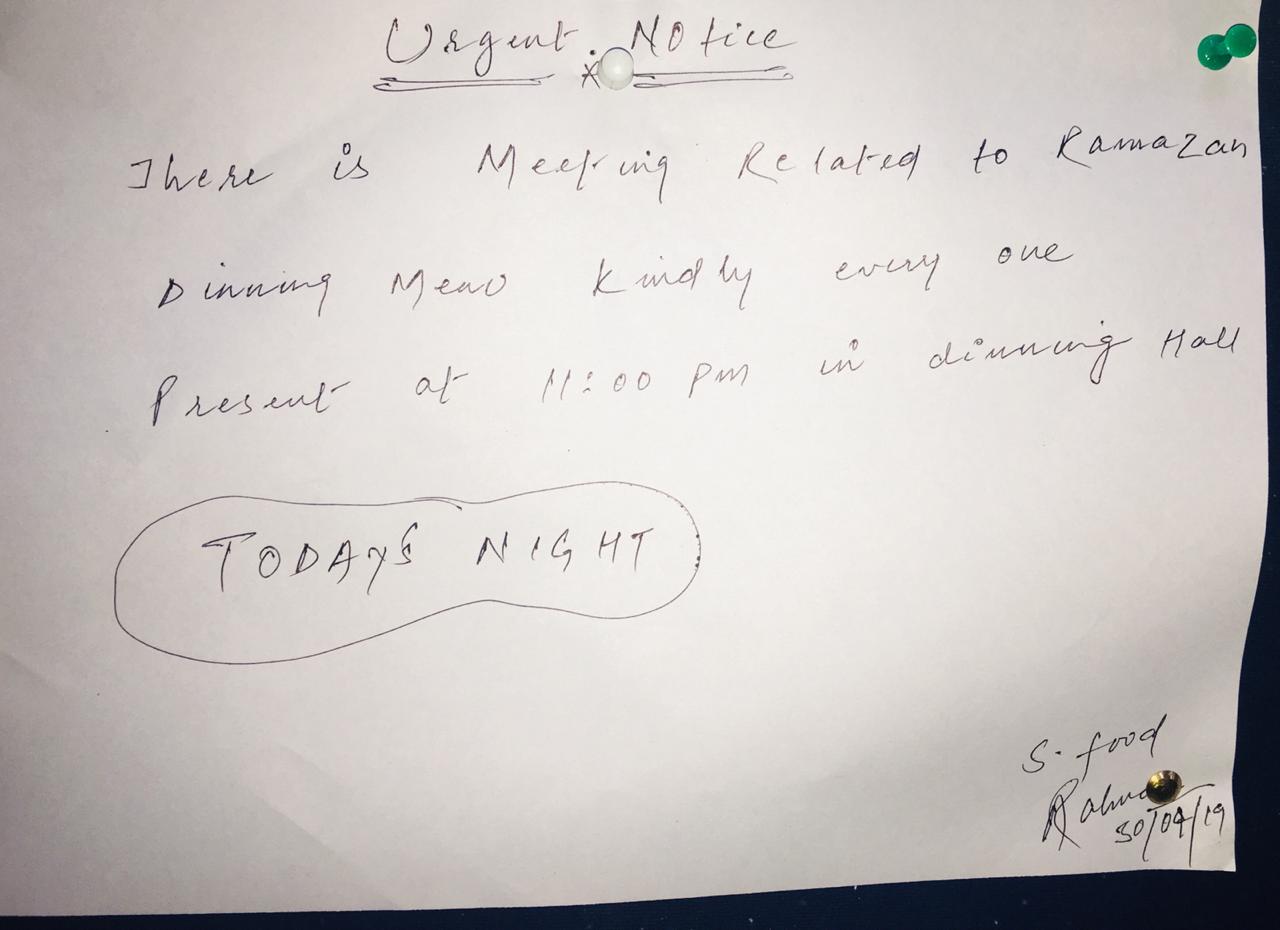 Urgent Notice
There is Meeting Related to Ramazan
Dinning Menu Kindly every one
Present at 11:00 pm in dinning Hall
TODAY'S NIGHT
S. food
30/04/19